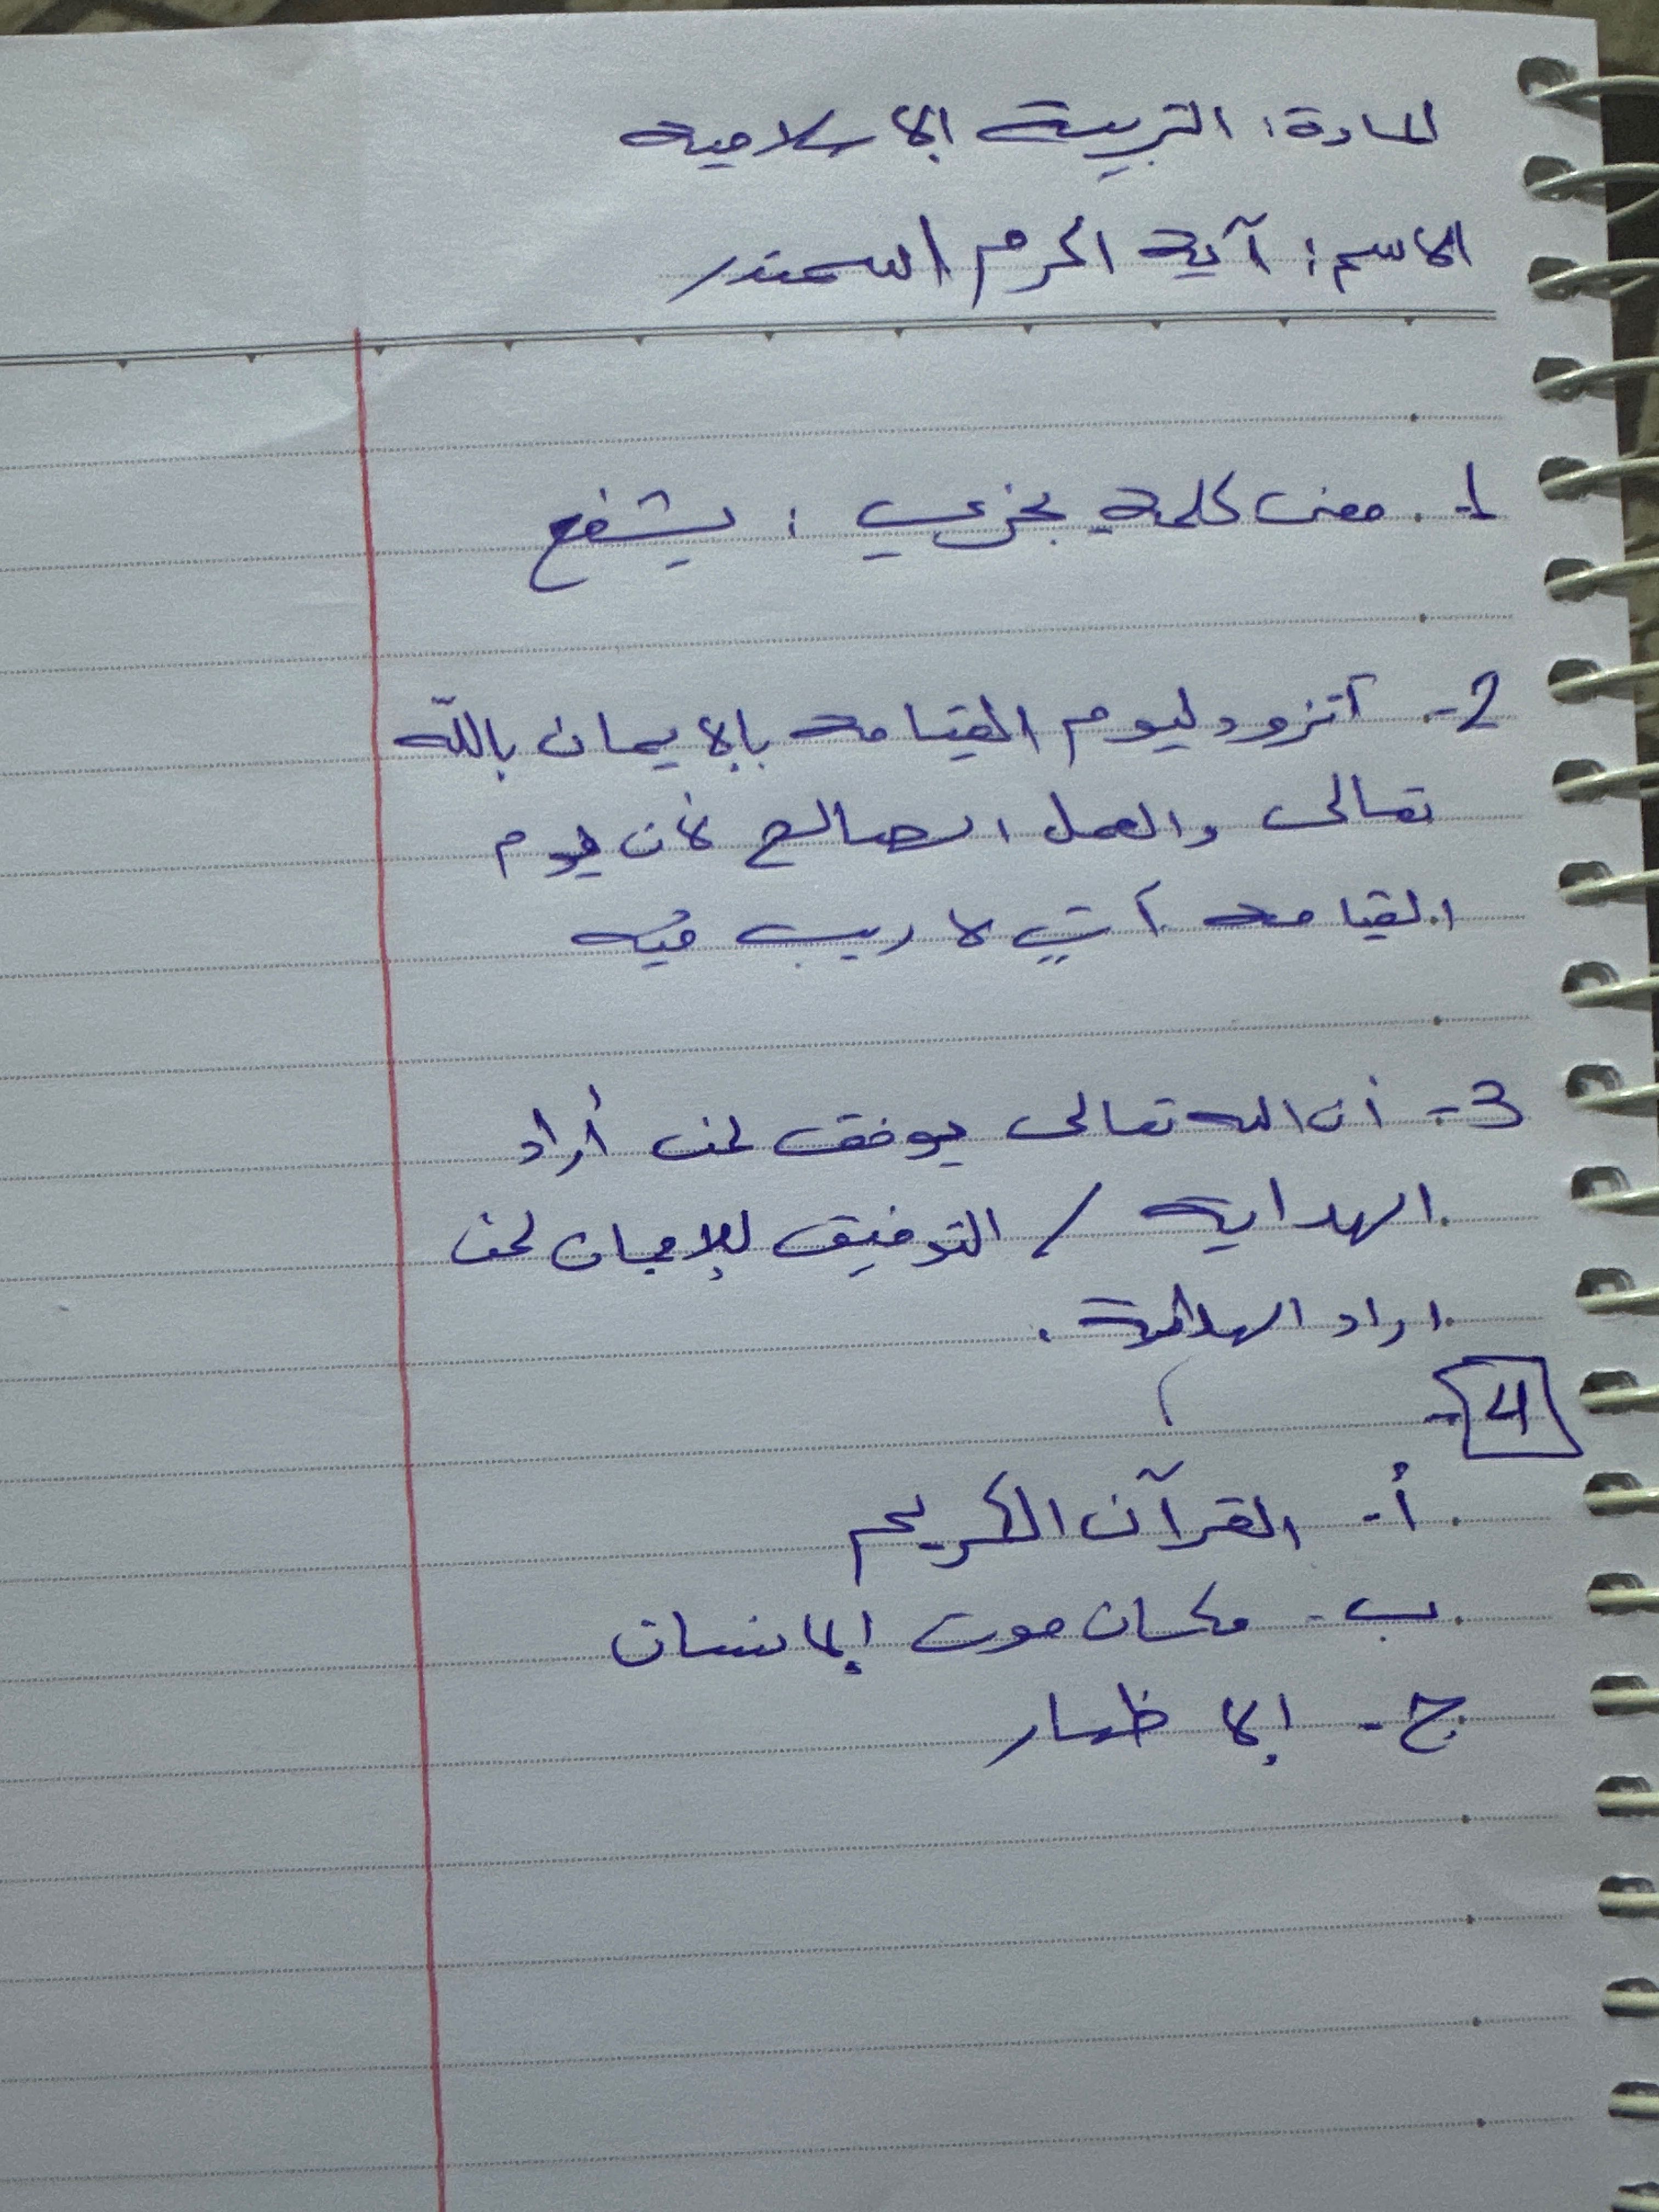 المادة: التربية الإسلامية
الاسم: آية اكرم السمندر
1. معنى كلمة يجزي: يشفع
2- أتزود ليوم القيامة بالإيمان بالله
تعالى والعمل الصالح لأن يوم
القيامة آتٍ لا ريب فيه
3- أن الله تعالى يوفق لمن أراد
الهداية / التوفيق للإيمان لمن
اراد الهداية.
4-
أ- القرآن الكريم
ب- مكان موت الإنسان
ج- الإظهار